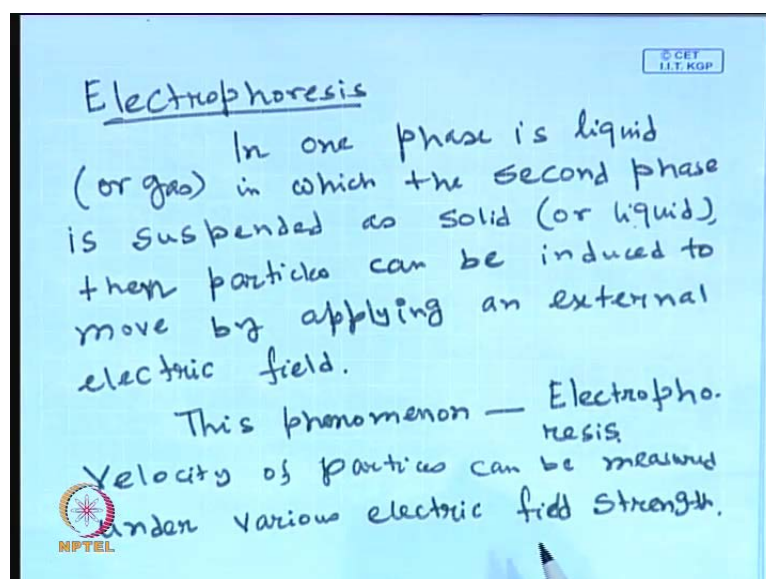 © CET
I.I.T. KGP
Electrophoresis
In one phase is liquid
(or gas) in which the second phase
is suspended as solid (or liquid),
then particles can be induced to
move by applying an external
electric field.
This phenomenon — Electropho-
resis.
Velocity of partices can be measured
under various electric field strength.
NPTEL